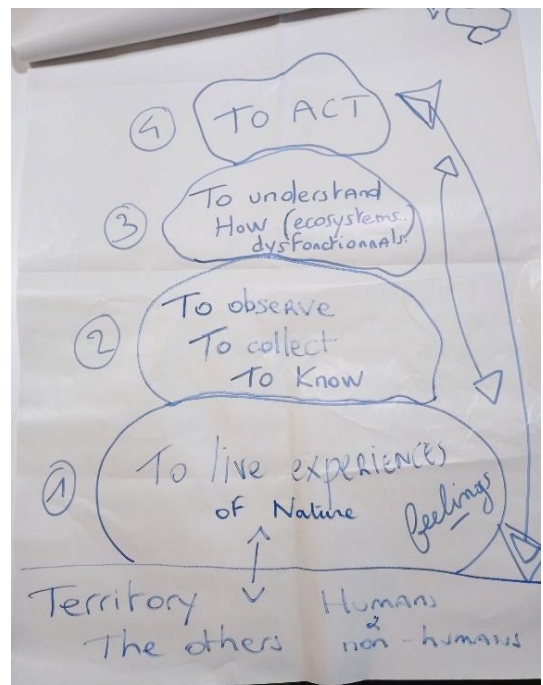 4 TO ACT
3 To understand
How (ecosystems..
dysfonctionnals.
2 To observe
To collect
To Know
1 To live experiences
of Nature
feelings
Territory Humans
The others & non-humans